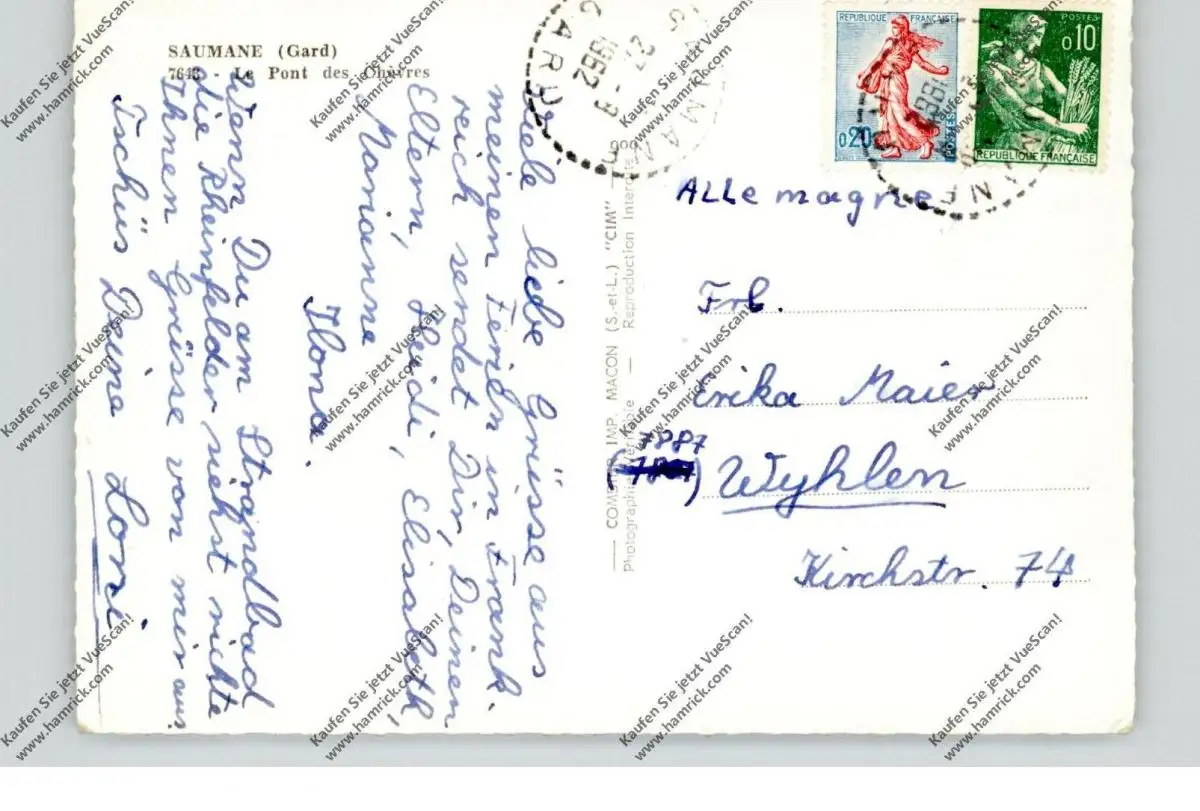 SAUMANE (Gard)
7643 - Le Pont des Chèvres
Viele liebe Grüsse aus
meinen Ferien in Frank-
reich sendet Dir, Deinen
Eltern, Heidi, Elisabeth,
Marianne
Ilona.
Wenn Du am Strandbad
die Rheinfelder siehst richte
Ihnen Grüsse von mir aus.
Tschüs Deine Loni
COMB IMP. MACON (S.-et-L.) "CIM"
Photographie Véritable — Reproduction
SAUMANE
GARD
1962
REPUBLIQUE FRANÇAISE
0,20
POSTES
POSTES
0,10
REPUBLIQUE FRANÇAISE
ALLemagne
Frl.
Erika Maier
7887
Wyhlen
Kirchstr. 74
Kaufen Sie jetzt VueScan!
www.hamrick.com